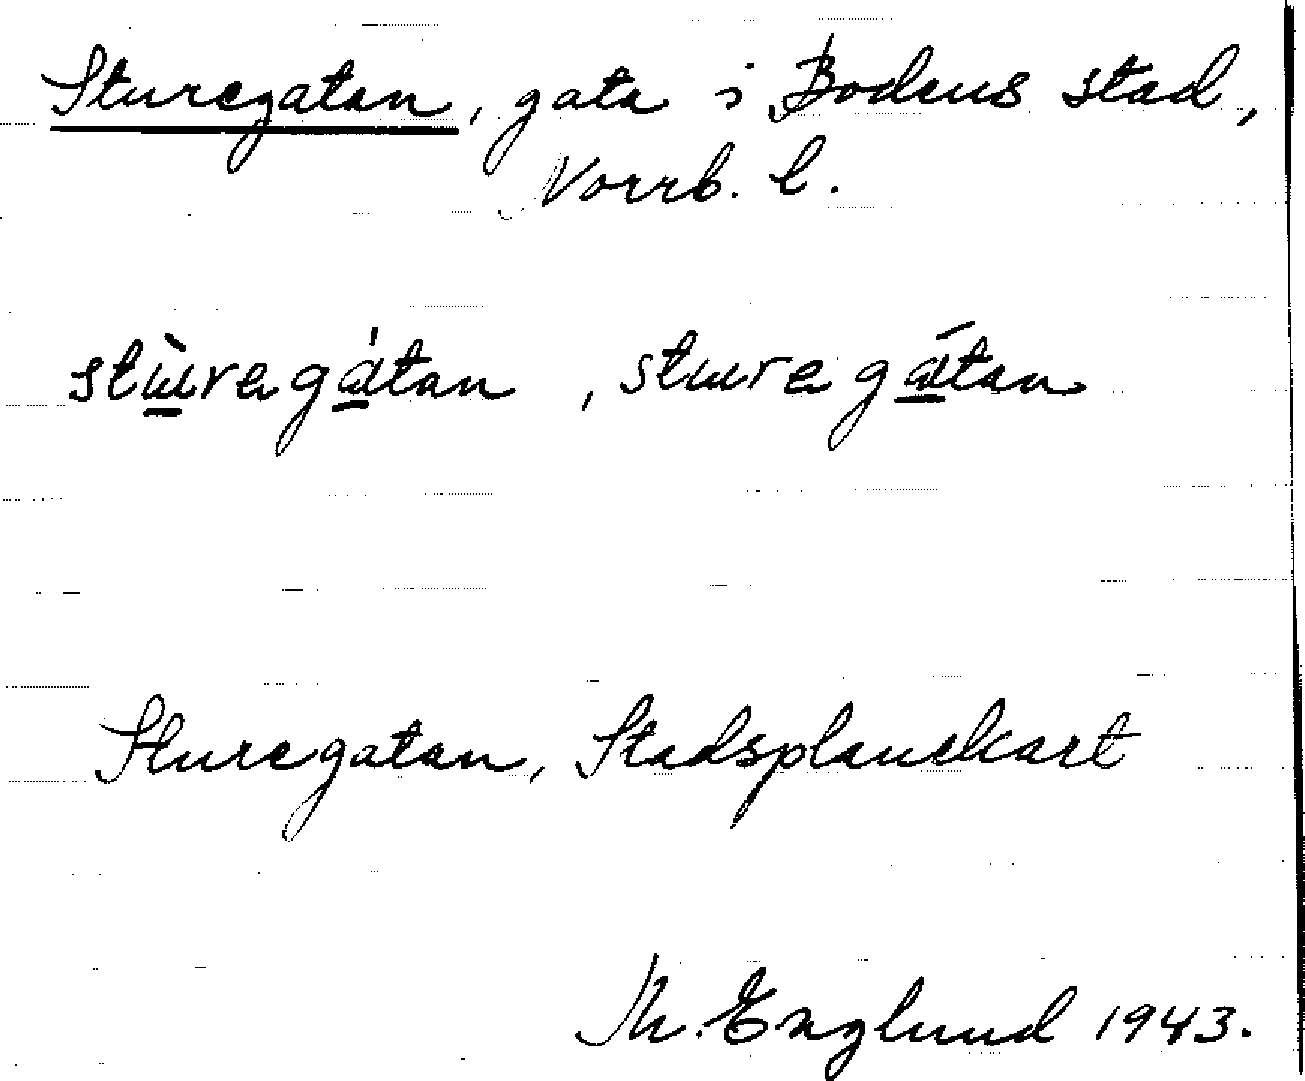 Sturegatan, gata i Bodens stad,
Norrb. l.
stùregátan, sturegátan
Sturegatan, Stadsplanekart
M. Englund 1943.